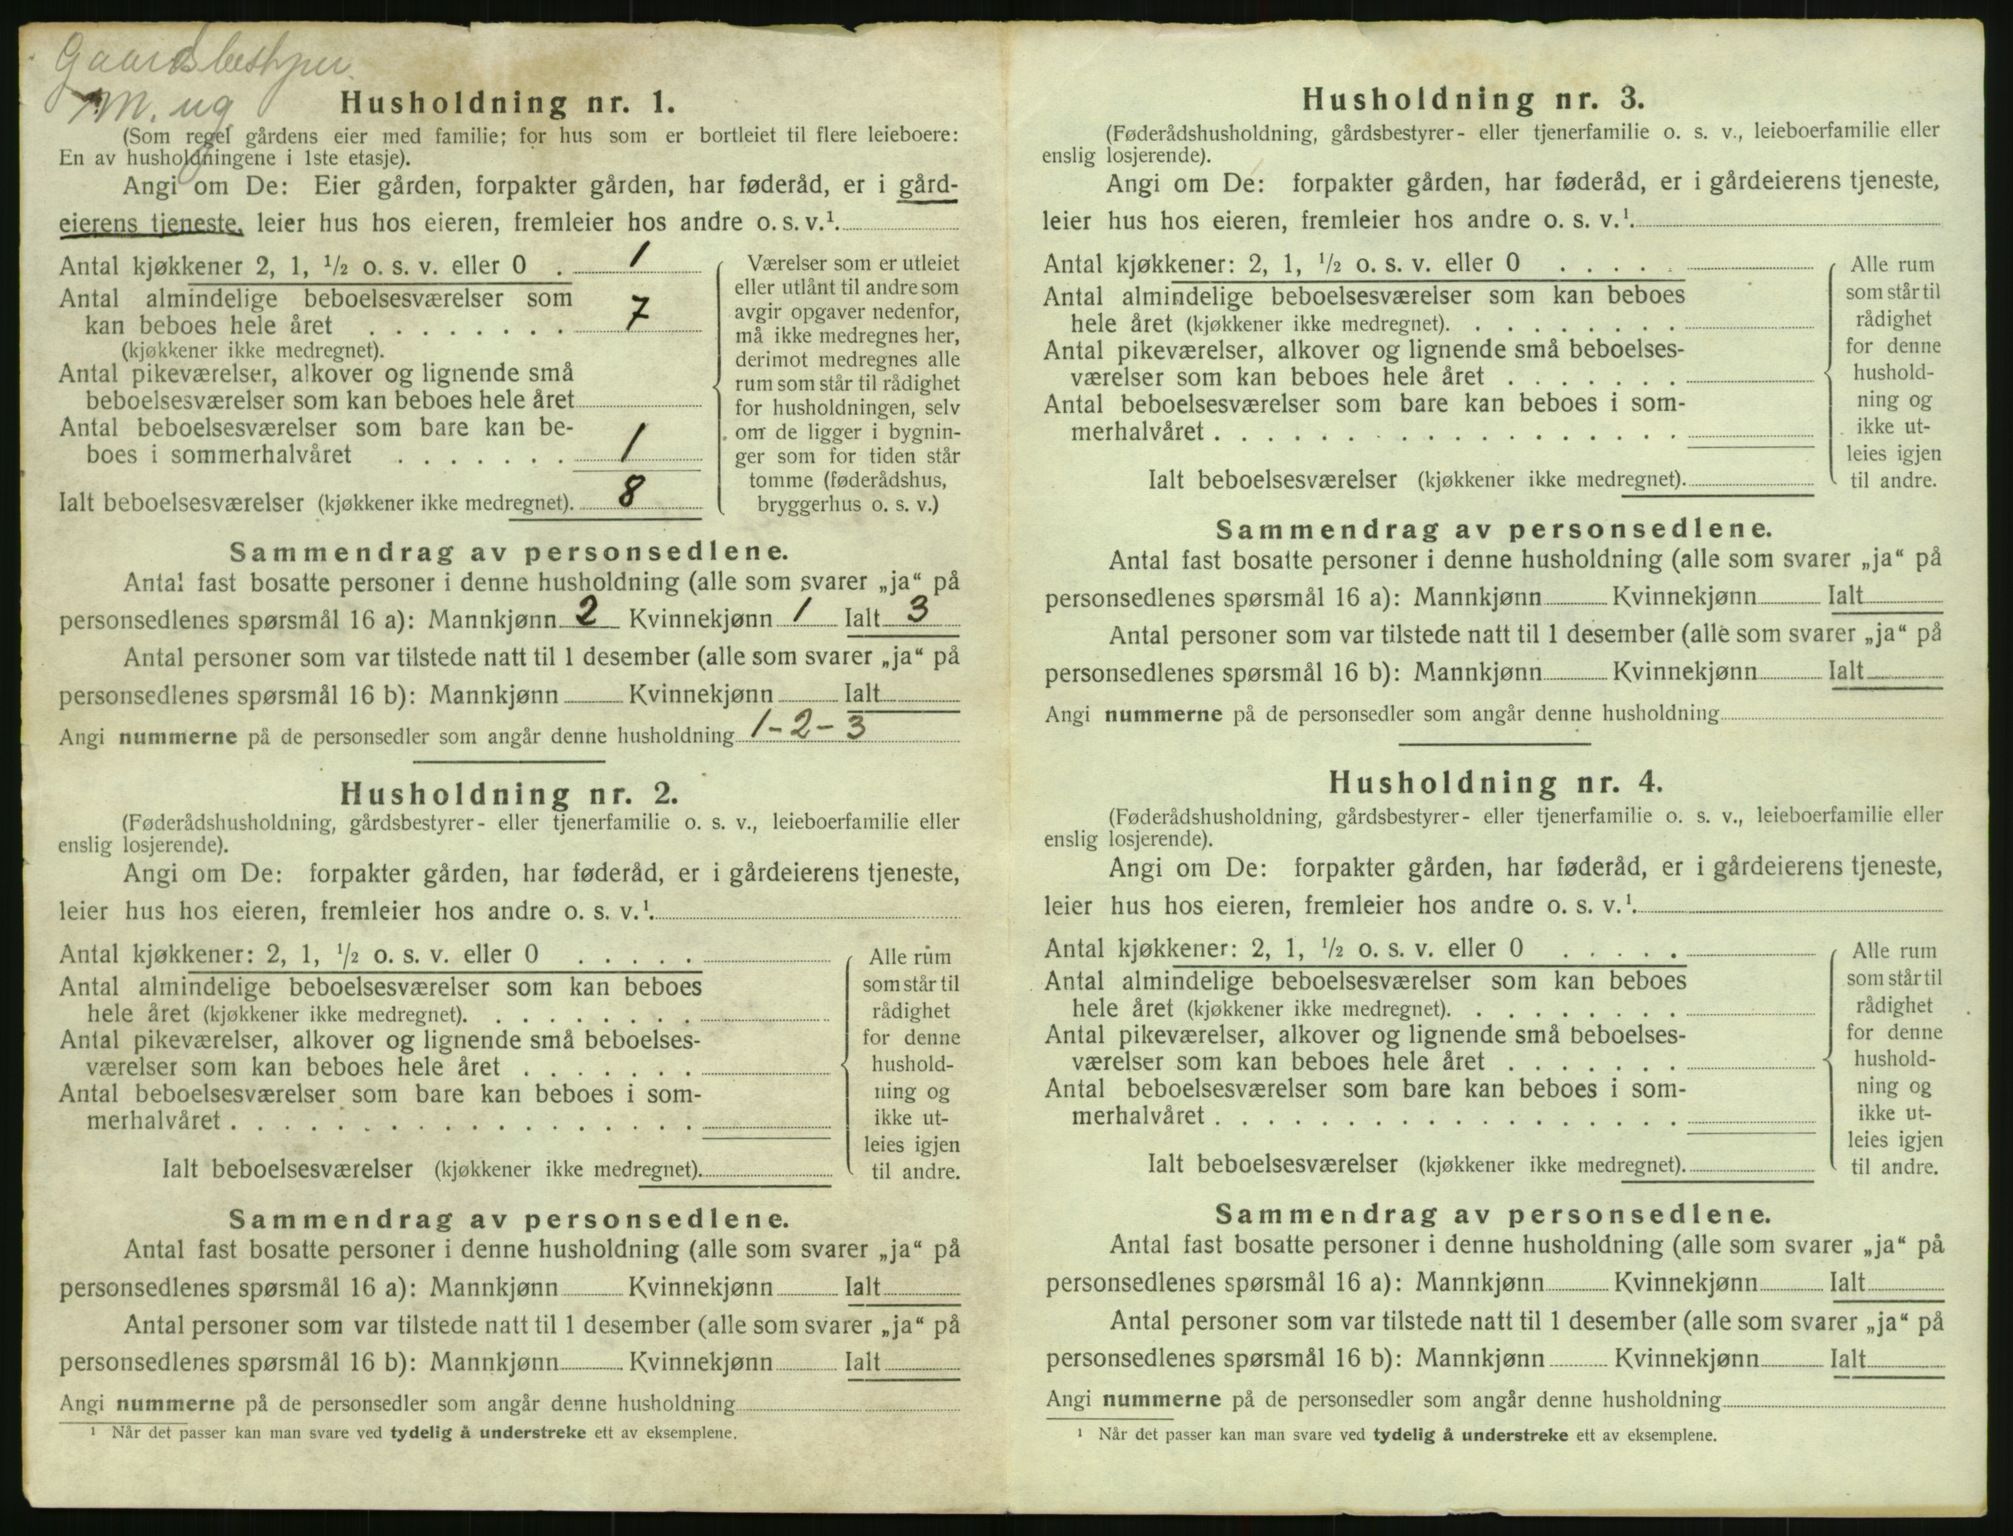 Gaardsbestyrer
M. ug
Husholdning nr. 1.
(Som regel gårdens eier med familie; for hus som er bortleiet til flere leieboere:
En av husholdningene i 1ste etasje).
Angi om De: Eier gården, forpakter gården, har føderåd, er i gård-
eierens tjeneste, leier hus hos eieren, fremleier hos andre o. s. v.¹.
Antal kjøkkener 2, 1, ½ o. s. v. eller 0 . 1
Antal almindelige beboelsesværelser som
kan beboes hele året . . . . . . . . 7
(kjøkkener ikke medregnet).
Antal pikeværelser, alkover og lignende små
beboelsesværelser som kan beboes hele året
Antal beboelsesværelser som bare kan be-
boes i sommerhalvåret . . . . . . . 1
Ialt beboelsesværelser (kjøkkener ikke medregnet). 8
Værelser som er utleiet
eller utlånt til andre som
avgir opgaver nedenfor,
må ikke medregnes her,
derimot medregnes alle
rum som står til rådighet
for husholdningen, selv
om de ligger i bygnin-
ger som for tiden står
tomme (føderådshus,
bryggerhus o. s. v.)
Sammendrag av personsedlene.
Antal fast bosatte personer i denne husholdning (alle som svarer „ja“ på
personsedlenes spørsmål 16 a): Mannkjønn 2 Kvinnekjønn 1 Ialt 3
Antal personer som var tilstede natt til 1 desember (alle som svarer „ja“ på
personsedlenes spørsmål 16 b): Mannkjønn Kvinnekjønn Ialt
Angi nummerne på de personsedler som angår denne husholdning 1-2-3
Husholdning nr. 2.
(Føderådshusholdning, gårdsbestyrer- eller tjenerfamilie o. s. v., leieboerfamilie eller
enslig losjerende).
Angi om De: forpakter gården, har føderåd, er i gårdeierens tjeneste,
leier hus hos eieren, fremleier hos andre o. s. v.¹.
Antal kjøkkener: 2, 1, ½ o. s. v. eller 0 . . . . .
Antal almindelige beboelsesværelser som kan beboes
hele året (kjøkkener ikke medregnet). . . . . . . . .
Antal pikeværelser, alkover og lignende små beboelses-
værelser som kan beboes hele året . . . . . . .
Antal beboelsesværelser som bare kan beboes i som-
merhalvåret . . . . . . . . . . . . . . . . . .
Ialt beboelsesværelser (kjøkkener ikke medregnet).
Alle rum
som står til
rådighet
for denne
hushold-
ning og
ikke ut-
leies igjen
til andre.
Sammendrag av personsedlene.
Antal fast bosatte personer i denne husholdning (alle som svarer „ja“ på
personsedlenes spørsmål 16 a): Mannkjønn Kvinnekjønn Ialt
Antal personer som var tilstede natt til 1 desember (alle som svarer „ja“ på
personsedlenes spørsmål 16 b): Mannkjønn Kvinnekjønn Ialt
Angi nummerne på de personsedler som angår denne husholdning
¹ Når det passer kan man svare ved tydelig å understreke ett av eksemplene.
Husholdning nr. 3.
(Føderådshusholdning, gårdsbestyrer- eller tjenerfamilie o. s. v., leieboerfamilie eller
enslig losjerende).
Angi om De: forpakter gården, har føderåd, er i gårdeierens tjeneste,
leier hus hos eieren, fremleier hos andre o. s. v.¹.
Antal kjøkkener: 2, 1, ½ o. s. v. eller 0 . . . . .
Antal almindelige beboelsesværelser som kan beboes
hele året (kjøkkener ikke medregnet). . . . . . . . .
Antal pikeværelser, alkover og lignende små beboelses-
værelser som kan beboes hele året . . . . . . .
Antal beboelsesværelser som bare kan beboes i som-
merhalvåret . . . . . . . . . . . . . . . . . .
Ialt beboelsesværelser (kjøkkener ikke medregnet).
Alle rum
som står til
rådighet
for denne
hushold-
ning og
ikke ut-
leies igjen
til andre.
Sammendrag av personsedlene.
Antal fast bosatte personer i denne husholdning (alle som svarer „ja“ på
personsedlenes spørsmål 16 a): Mannkjønn Kvinnekjønn Ialt
Antal personer som var tilstede natt til 1 desember (alle som svarer „ja“ på
personsedlenes spørsmål 16 b): Mannkjønn Kvinnekjønn Ialt
Angi nummerne på de personsedler som angår denne husholdning
Husholdning nr. 4.
(Føderådshusholdning, gårdsbestyrer- eller tjenerfamilie o. s. v., leieboerfamilie eller
enslig losjerende).
Angi om De: forpakter gården, har føderåd, er i gårdeierens tjeneste,
leier hus hos eieren, fremleier hos andre o. s. v.¹.
Antal kjøkkener: 2, 1, ½ o. s. v. eller 0 . . . . .
Antal almindelige beboelsesværelser som kan beboes
hele året (kjøkkener ikke medregnet). . . . . . . . .
Antal pikeværelser, alkover og lignende små beboelses-
værelser som kan beboes hele året . . . . . . .
Antal beboelsesværelser som bare kan beboes i som-
merhalvåret . . . . . . . . . . . . . . . . . .
Ialt beboelsesværelser (kjøkkener ikke medregnet).
Alle rum
som står til
rådighet
for denne
hushold-
ning og
ikke ut-
leies igjen
til andre.
Sammendrag av personsedlene.
Antal fast bosatte personer i denne husholdning (alle som svarer „ja“ på
personsedlenes spørsmål 16 a): Mannkjønn Kvinnekjønn Ialt
Antal personer som var tilstede natt til 1 desember (alle som svarer „ja“ på
personsedlenes spørsmål 16 b): Mannkjønn Kvinnekjønn Ialt
Angi nummerne på de personsedler som angår denne husholdning
¹ Når det passer kan man svare ved tydelig å understreke ett av eksemplene.